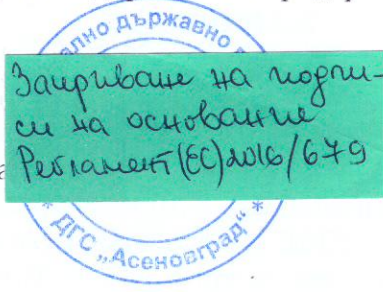 ално държавно
Закриване на подпи-
си на основание
Регламент (ЕС) 2016/679
* ДГС „Асеновград“ *